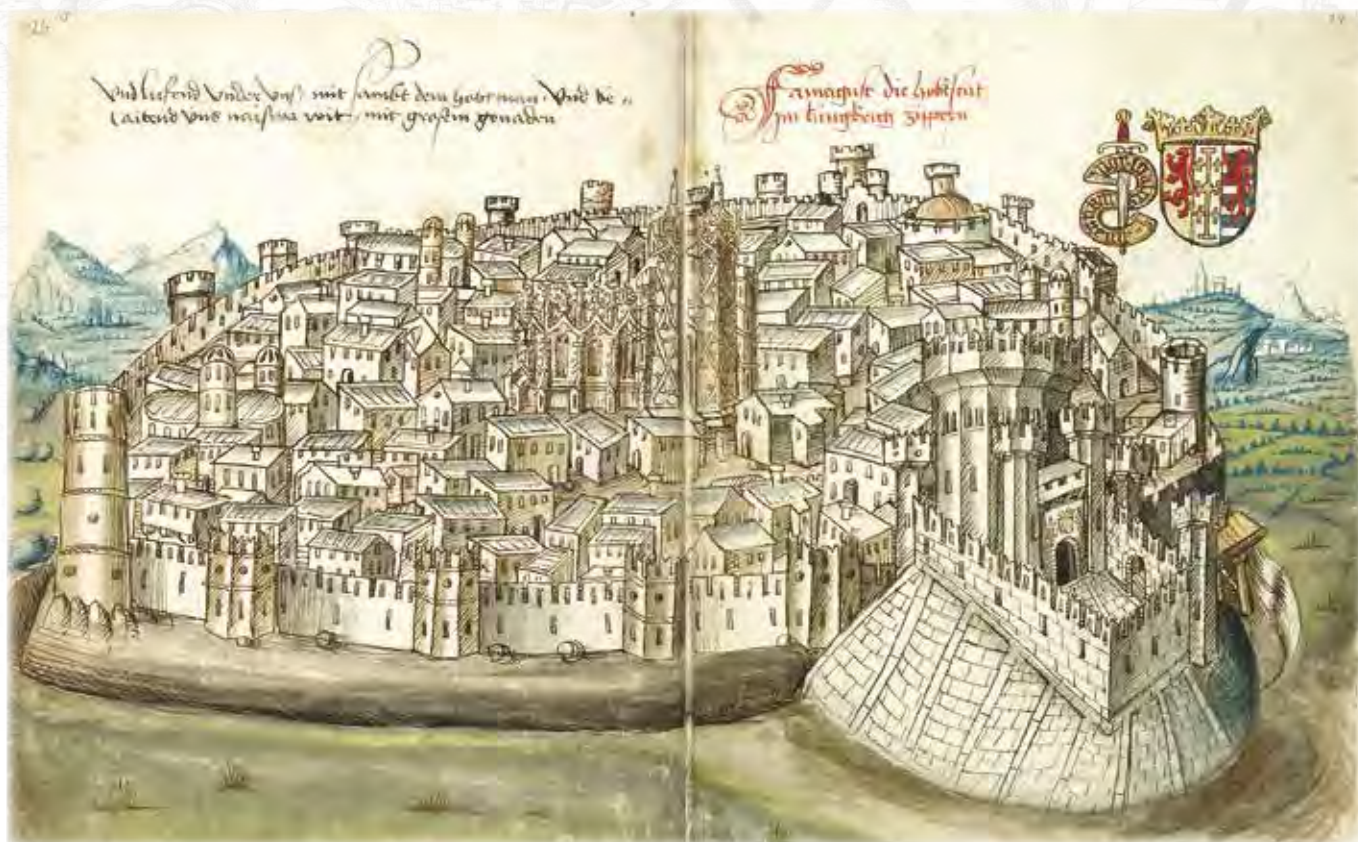 24
Vnd lieſend Vnder Vnß mit ſambt dem hobtman Vnd be„
laitend Vns
wit mit groſem genaden
Famagust die hobtſtat
Im küngkreich zippern